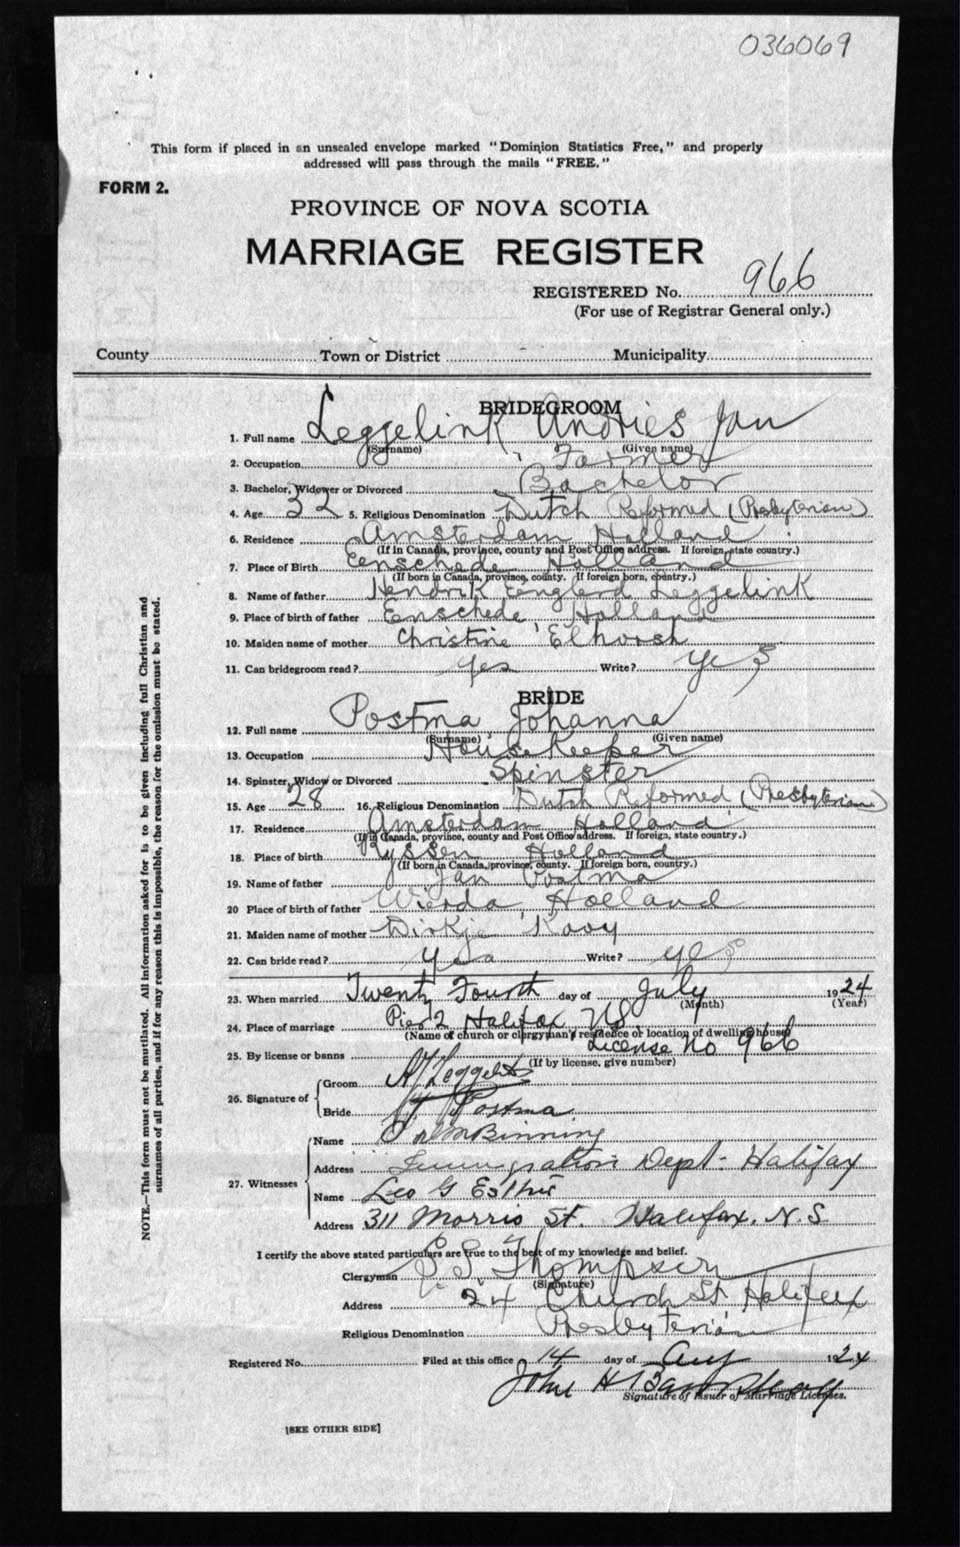 036069
This form if placed in an unsealed envelope marked "Dominion Statistics Free," and properly
addressed will pass through the mails "FREE."
FORM 2.
PROVINCE OF NOVA SCOTIA
MARRIAGE REGISTER
REGISTERED No. 966
(For use of Registrar General only.)
County Town or District Municipality
BRIDEGROOM
1. Full name Leggelink Andries Jan
(Surname) (Given name)
2. Occupation Farmer
3. Bachelor, Widower or Divorced Bachelor
4. Age 32 5. Religious Denomination Dutch Reformed (Presbyterian)
6. Residence Amsterdam Holland
(If in Canada, province, county and Post Office address. If foreign, state country.)
7. Place of Birth Eenschede Holland
(If born in Canada, province, county. If foreign born, country.)
8. Name of father Hendrik Leggelink
9. Place of birth of father Enschede Holland
10. Maiden name of mother Christine
11. Can bridegroom read? Yes Write? Yes
BRIDE
12. Full name Postma Johanna
(Surname) (Given name)
13. Occupation HouseKeeper
14. Spinster, Widow or Divorced Spinster
15. Age 28 16. Religious Denomination Dutch Reformed (Presbyterian)
17. Residence Amsterdam Holland
(If in Canada, province, county and Post Office address. If foreign, state country.)
18. Place of birth Ryssen Holland
(If born in Canada, province, county. If foreign born, country.)
19. Name of father Jan Postma
20 Place of birth of father Wierda Holland
21. Maiden name of mother Dirkje Kooy
22. Can bride read? Yes Write? Yes
23. When married Twenty Fourth day of July 1924
(Month) (Year)
24. Place of marriage Pier 2 Halifax NS
(Name of church or clergyman's residence or location of dwelling house)
25. By license or banns License No 966
(If by license, give number)
26. Signature of
Groom
Bride Postma
27. Witnesses
Name Binning
Address Immigration Dept. Halifax
Name Leo G
Address 311 Morris St. Halifax, N.S.
I certify the above stated particulars are true to the best of my knowledge and belief.
Clergyman Thompson
(Signature)
Address 24 Church St Halifax
Religious Denomination Presbyterian
Registered No. Filed at this office 14 day of Aug 1924
John H
Signature of Issuer of Marriage Licenses.
[SEE OTHER SIDE]
NOTE.—This form must not be mutilated. All information asked for is to be given including full Christian and
surnames of all parties, and if for any reason this is impossible, the reason for the omission must be stated.